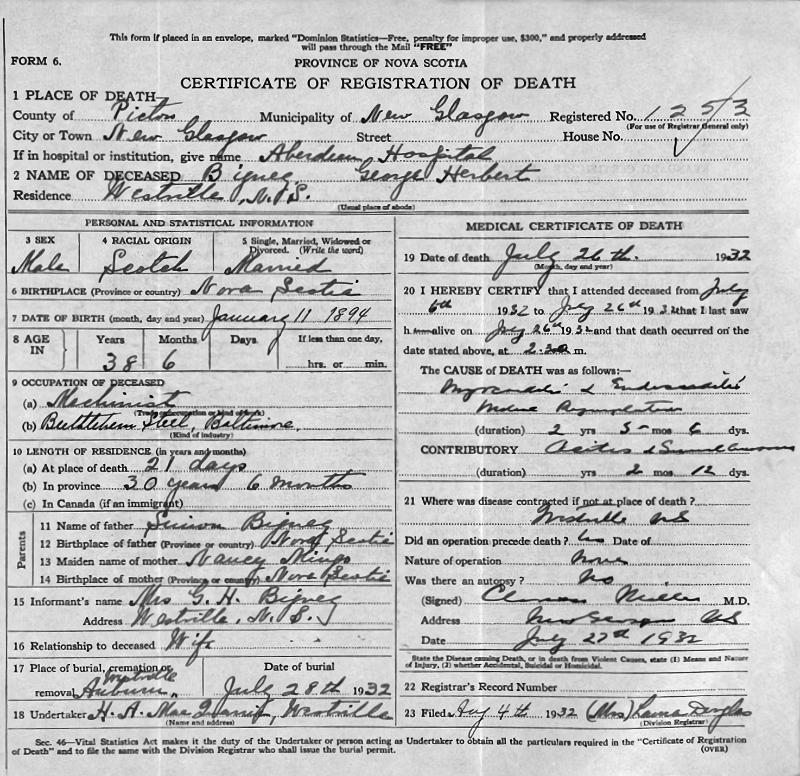 This form if placed in an envelope, marked "Dominion Statistics—Free, penalty for improper use, $300," and properly addressed
will pass through the Mail "FREE"
FORM 6.
PROVINCE OF NOVA SCOTIA
CERTIFICATE OF REGISTRATION OF DEATH
1 PLACE OF DEATH
County of Pictou Municipality of New Glasgow Registered No. 1253
(For use of Registrar General only)
City or Town New Glasgow Street House No.
If in hospital or institution, give name Aberdeen Hospital
2 NAME OF DECEASED Bigney George Herbert
Residence Westville, N.S.
(Usual place of abode)
PERSONAL AND STATISTICAL INFORMATION
3 SEX 4 RACIAL ORIGIN 5 Single, Married, Widowed or
Divorced. (Write the word)
Male Scotch Married
6 BIRTHPLACE (Province or country) Nova Scotia
7 DATE OF BIRTH (month, day and year) January 11 1894
8 AGE IN Years Months Days If less than one day,
38 6 hrs. or min.
9 OCCUPATION OF DECEASED
(a) Machinist
(Trade, profession or kind of work)
(b) Bethlehem Steel, Baltimore.
(Kind of industry)
10 LENGTH OF RESIDENCE (in years and months)
(a) At place of death 21 days
(b) In province 30 years 6 months
(c) In Canada (if an immigrant)
Parents
11 Name of father Simon Bigney
12 Birthplace of father (Province or country) Nova Scotia
13 Maiden name of mother Nancy Mingo
14 Birthplace of mother (Province or country) Nova Scotia
15 Informant's name Mrs G. H. Bigney
Address Westville, N.S.
16 Relationship to deceased Wife
17 Place of burial, cremation or Date of burial
Westville
removal Auburn. July 28th 1932
18 Undertaker H. A. Westville
(Name and address)
MEDICAL CERTIFICATE OF DEATH
19 Date of death July 26th. 1932
(Month, day and year)
20 I HEREBY CERTIFY that I attended deceased from July
6th 1932 to July 26th 1932 that I last saw
h alive on July 26th 1932 and that death occurred on the
date stated above, at 2.30 m.
The CAUSE OF DEATH was as follows:—
Myocarditis & Endocarditis
(duration) 2 yrs 5 mos 6 dys.
CONTRIBUTORY
(duration) yrs 2 mos 12 dys.
21 Where was disease contracted if not at place of death?
Westville NS
Did an operation precede death? No Date of
Nature of operation None
Was there an autopsy? No
(Signed) Miller M.D.
Address New Glasgow NS
Date July 27th 1932
State the Disease causing Death, or in death from Violent Causes, state (1) Means and Nature
of Injury, (2) whether Accidental, Suicidal or Homicidal.
22 Registrar's Record Number
23 Filed Aug 4th 1932 (Mrs) Laura Douglas
(Division Registrar)
Sec. 46—Vital Statistics Act makes it the duty of the Undertaker or person acting as Undertaker to obtain all the particulars required in the "Certificate of Registration
of Death" and to file the same with the Division Registrar who shall issue the burial permit. (OVER)